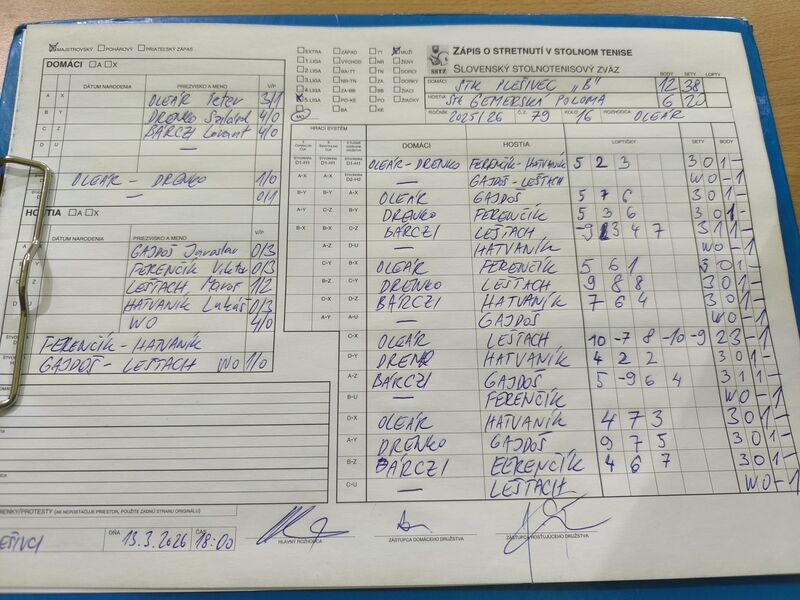 MAJSTROVSKÝ POHÁROVÝ PRIATEĽSKÝ ZÁPAS
DOMÁCI A X
DÁTUM NARODENIA PRIEZVISKO A MENO V/P
A X OLEÁR Peter 3/1
B Y DRENKO 4/0
C Z BÁRCZI Levant 4/0
D U —
OLEÁR - DRENKO 1/0
— 0/1
HOSTIA A X
DÁTUM NARODENIA PRIEZVISKO A MENO V/P
GAJDOŠ Jaroslav 0/3
FERENČÍK 0/3
LEŠTACH 1/2
HATVANÍK Lukáš 0/3
WO 4/0
FERENČÍK - HATVANÍK
GAJDOŠ - LEŠTACH WO 1/0
EXTRA ZÁPAD TT MUŽI
1. LIGA BA ŽENY
2. LIGA BA-TT TN DORCI
3. LIGA TN-NR NR DORKY
4. LIGA ZA-BB BB ŽIACI
5. LIGA PO-KE PO ŽIAČKY
MO
SSTZ
ZÁPIS O STRETNUTÍ V STOLNOM TENISE
SLOVENSKÝ STOLNOTENISOVÝ ZVÄZ
BODY SETY LOPTY
DOMÁCI STK PLEŠIVEC „B" 12 38
HOSTIA STK GEMERSKÁ POLOMA 6 20
ROČNÍK 2025/26 Č.Z. 79 KOLO 16 ROZHODCA OLEÁR
HRACÍ SYSTÉM DOMÁCI HOSTIA LOPTIČKY SETY BODY
OLEÁR-DRENKO FERENČÍK-HATVANÍK 5 2 3 3 0 1 -
— GAJDOŠ-LEŠTACH WO - 1
OLEÁR GAJDOŠ 5 7 6 3 0 1 -
DRENKO FERENČÍK 5 3 6 3 0 1 -
BÁRCZI LEŠTACH -9 3 4 7 3 1 1 -
— HATVANÍK WO - 1
OLEÁR FERENČÍK 5 6 1 3 0 1 -
DRENKO LEŠTACH 9 8 8 3 0 1 -
BÁRCZI HATVANÍK 7 6 4 3 0 1 -
— GAJDOŠ WO - 1
C-X OLEÁR LEŠTACH 10 -7 8 -10 -9 2 3 - 1
D-Y DRENKO HATVANÍK 4 2 2 3 0 1 -
A-Z BÁRCZI GAJDOŠ 5 -9 6 4 3 1 1 -
B-U — FERENČÍK WO - 1
D-X OLEÁR HATVANÍK 4 7 3 3 0 1 -
A-Y DRENKO GAJDOŠ 9 7 5 3 0 1 -
B-Z BÁRCZI FERENČÍK 4 6 7 3 0 1 -
C-U — LEŠTACH WO - 1
(AK NEPOSTAČUJE PRIESTOR, POUŽITE ZADNÚ STRANU ORIGINÁLU)
DŇA 13.3.2026 ČAS 18:00
HLAVNÝ ROZHODCA
ZÁSTUPCA DOMÁCEHO DRUŽSTVA
ZÁSTUPCA HOSŤUJÚCEHO DRUŽSTVA